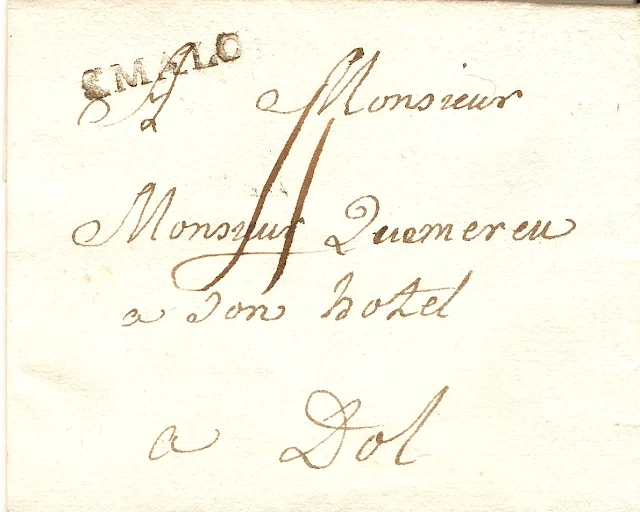 SMALO
A Monsieur
Monsieur Quemereu
a Son hotel
a Dol